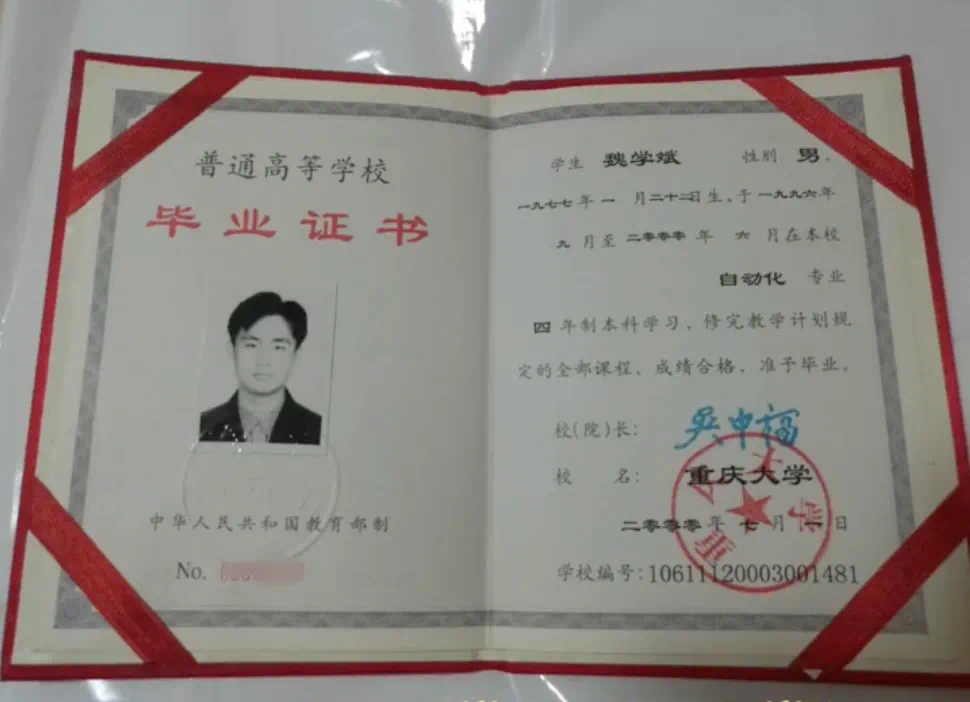 普通高等学校
毕业证书
中华人民共和国教育部制
No.
学生 魏学斌 性别 男，
一九七七年 一 月二十二日生，于一九九六年
九 月至 二零零零 年 六 月在本校
自动化 专业
四 年制本科学习，修完教学计划规
定的全部课程，成绩合格，准予毕业。
校（院）长： 吴中福
校 名： 重庆大学
二零零零年 七 月 一 日
学校编号：106111200030014​81